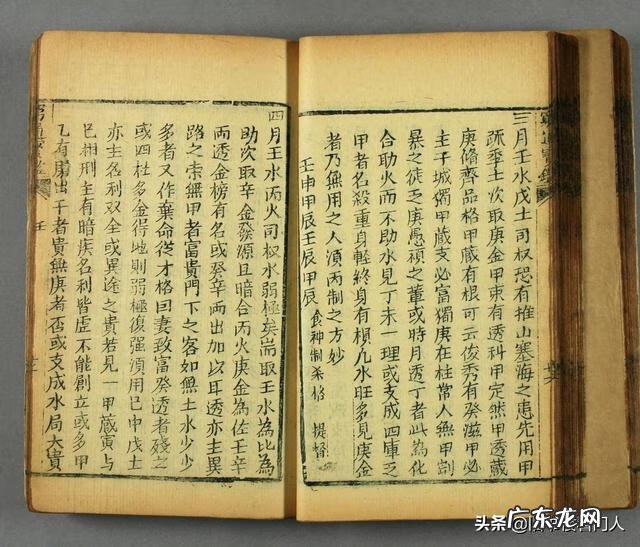 三月壬水戊土司权恐有推山塞海之患先用甲
疏季土次取庚金甲庚有透科甲定然甲透藏
庚脩齊品格甲藏有根可云俊秀有癸滋甲必
主子城獨甲藏支必富獨庚在柱常人無甲剖
暴之徒乏庚愚頑之輩或時月透丁者此為化
合助火而不助水見丁未一理或支成四庫乏
甲者名殺重身輕終身有損凢水旺多見庚金
者乃無用之人湏丙制之方妙
壬申甲辰壬辰甲辰 食神制杀格 提督
四月壬水丙火司权水弱極矣耑取壬水為比為
助次取辛金發源且暗合丙火庚金為佐壬辛
兩透金榜有名或癸辛兩出加以耳透亦主異
路之荣無甲者富貴門下之客如無土水少少
多者又作棄命從才格回妻致富癸透者殘之
或四柱多金得地則弱極復强湏用巳申戊土
亦主名利双全或異途之貴若見一甲藏寅与
巳相刑主有暗疾名利皆虛不能創立或多甲
乙有庚出干者貴無庚者否或支成水局大貴
壬
头条
广东龙网